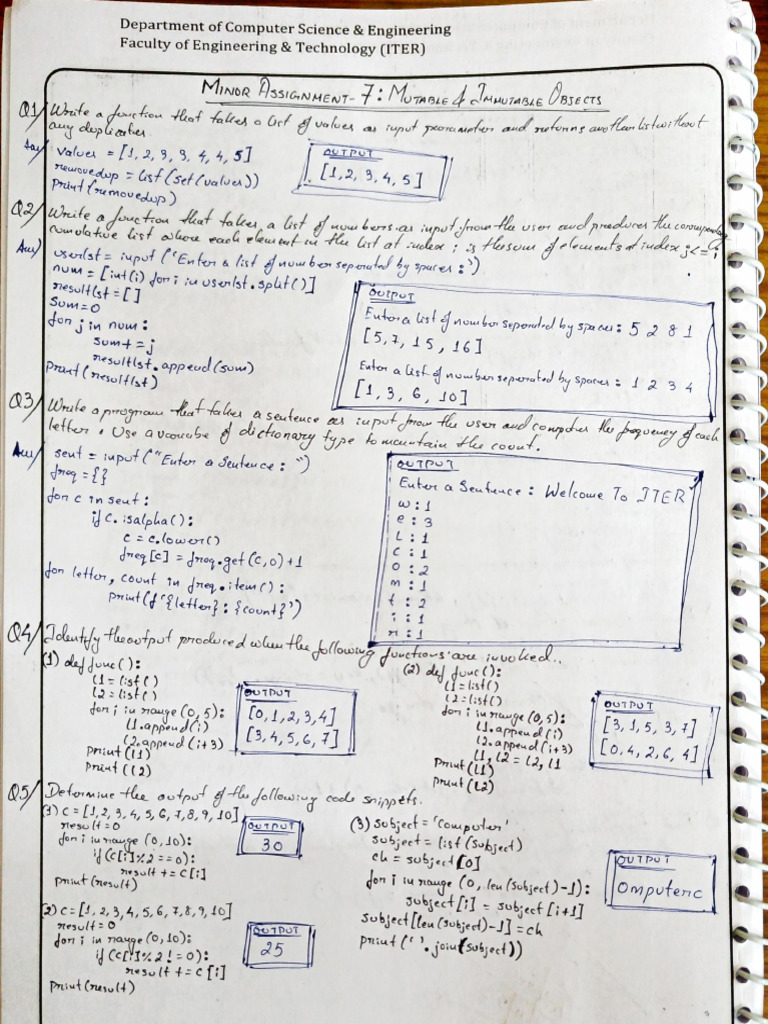 Department of Computer Science & Engineering
Faculty of Engineering & Technology (ITER)
MINOR ASSIGNMENT-7: MUTABLE & IMMUTABLE OBJECTS
Q1/ Write a function that takes a list of values as input parameter and returns another list without
any duplicates.
Ans/ values = [1, 2, 3, 3, 4, 4, 5]
removedup = list(set(values))
print(removedup)
OUTPUT
[1, 2, 3, 4, 5]
Q2/ Write a function that takes a list of numbers as input from the user and produces the corresponding
cumulative list where each element in the list at index i is the sum of elements at index j <= i
Ans) userlst = input ('Enter a list of number seperated by spaces:')
num = [int(i) for i in userlst.split()]
resultlst = []
sum=0
for j in num:
sum+=j
resultlst.append(sum)
print(resultlst)
OUTPUT
Enter a list of number seperated by spaces: 5 2 8 1
[5, 7, 15, 16]
Enter a list of number seperated by spaces: 1 2 3 4
[1, 3, 6, 10]
Q3/ Write a program that takes a sentence as input from the user and computes the frequency of each
letter. Use a variable of dictionary type to maintain the count.
Ans/ sent = input("Enter a Sentence: ")
freq = {}
for c in sent:
if c.isalpha():
c = c.lower()
freq[c] = freq.get(c,0)+1
for letter, count in freq.item():
print(f'{letter}: {count}')
OUTPUT
Enter a Sentence: Welcome To ITER
w: 1
e: 3
L: 1
c: 1
o: 2
m: 1
t: 2
i: 1
r: 1
Q4/ Identify the output produced when the following functions are invoked..
(1) def func():
l1 = list()
l2 = list()
for i in range (0, 5):
l1.append(i)
l2.append(i+3)
print(l1)
print(l2)
OUTPUT
[0, 1, 2, 3, 4]
[3, 4, 5, 6, 7]
(2) def func():
l1 = list()
l2 = list()
for i in range (0, 5):
l1.append(i)
l2.append(i+3)
l1, l2 = l2, l1
print(l1)
print(l2)
OUTPUT
[3, 1, 5, 3, 7]
[0, 4, 2, 6, 4]
Q5/ Determine the output of the following code snippets.
(1) C = [1, 2, 3, 4, 5, 6, 7, 8, 9, 10]
result = 0
for i in range (0, 10):
if (c[i]%2 == 0):
result += c[i]
print(result)
OUTPUT
30
(2) C = [1, 2, 3, 4, 5, 6, 7, 8, 9, 10]
result = 0
for i in range (0, 10):
if (c[i]%2 != 0):
result += c[i]
print(result)
OUTPUT
25
(3) subject = 'Computer'
subject = list(subject)
ch = subject[0]
for i in range (0, len(subject)-1):
subject[i] = subject[i+1]
subject[len(subject)-1] = ch
print(''.join(subject))
OUTPUT
OmputerC